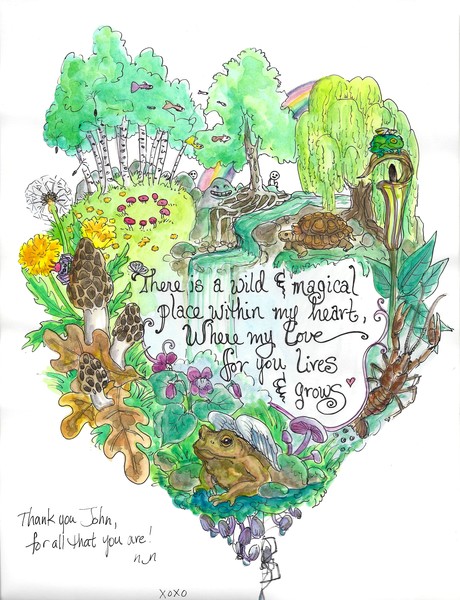 There is a wild & magical
place within my heart,
Where my Love
for you lives
& grows
Thank you John,
for all that you are!
xoxo